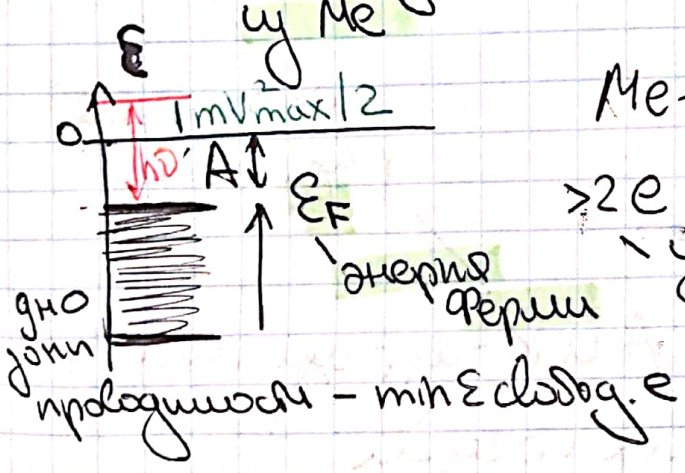 из Me
ε
mV²max/2
0
hν
A
Me
ε_F
>2 e
энергия
Ферми
дно
зоны
проводимости – min ε свобод. e